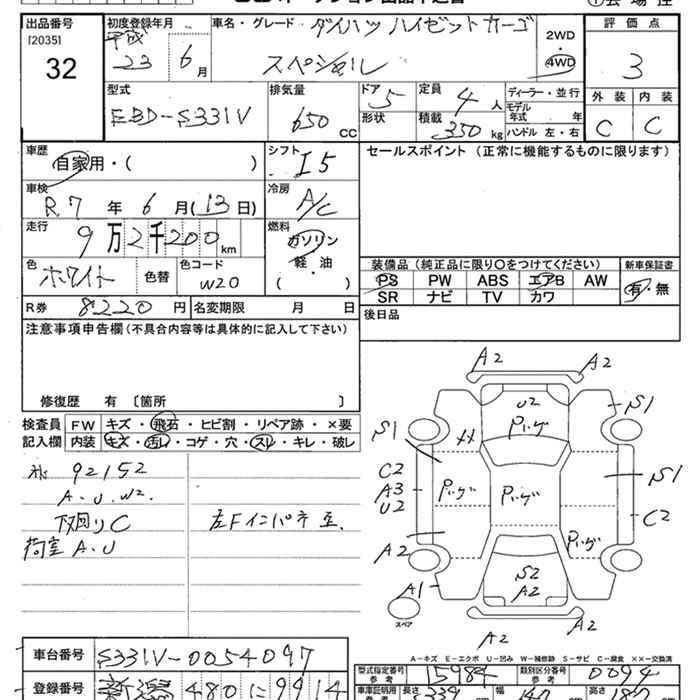 出品番号 初度登録年月 車名・グレード ダイハツ ハイゼットカーゴ 評価点
[2035] 平成 2WD
32 23 6月 スペシャル ・4WD 3
型式 排気量 ドア 5 定員 4人 ディーラー・並行 外装 内装
EBD-S331V 650 CC 形状 積載 350 kg モデル年式 年 C C
ハンドル 左・右
車歴 シフト I5 セールスポイント (正常に機能するものに限ります)
自家用・( )
車検 冷房
R7年 6月(13日) A/C
走行 燃料
9万2千200km ガソリン
軽・油
色 色コード ( ) 装備品(純正品に限り○をつけてください) 新車保証書
ホワイト 色替 W20 PS PW ABS エアB AW 有・無
R券 8220円 名変期限 月 日 SR ナビ TV カワ
注意事項申告欄(不具合内容等は具体的に記入して下さい) 後日品
修復歴 有〔箇所 〕
検査員 FW キズ・飛石・ヒビ割・リペア跡・×要
記入欄 内装 キズ・汚レ・コゲ・穴・スレ・キレ・破レ
92152
A.U.W2.
下回りC
荷室A.U
A2 A2
U2
S1 Pいげ S1
C2 Pいげ Pいげ S1
A3
U2 C2
A2 Pいげ
A1 S2
A2
スペア
A2 A2
A-キズ E-エクボ U-凹み W-補修跡 S-サビ C-腐食 ××-交換済
車台番号 S331V-0054097
型式指定番号 参考 15984 類別区分番号 参考 0094
登録番号 新潟 480 に 9914
車庫証明用 長さ 339 幅 147 高さ 187